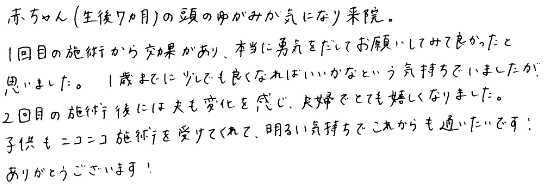 赤ちゃん(生後7カ月)の頭のゆがみが気になり来院。
1回目の施術から効果があり、本当に勇気をだしてお願いしてみて良かったと
思いました。 1歳までに少しでも良くなればいいかなという気持ちでいましたが、
2回目の施術後には夫も変化を感じ、夫婦でとても嬉しくなりました。
子供もニコニコ施術を受けてくれて、明るい気持ちでこれからも通いたいです!
ありがとうございます!